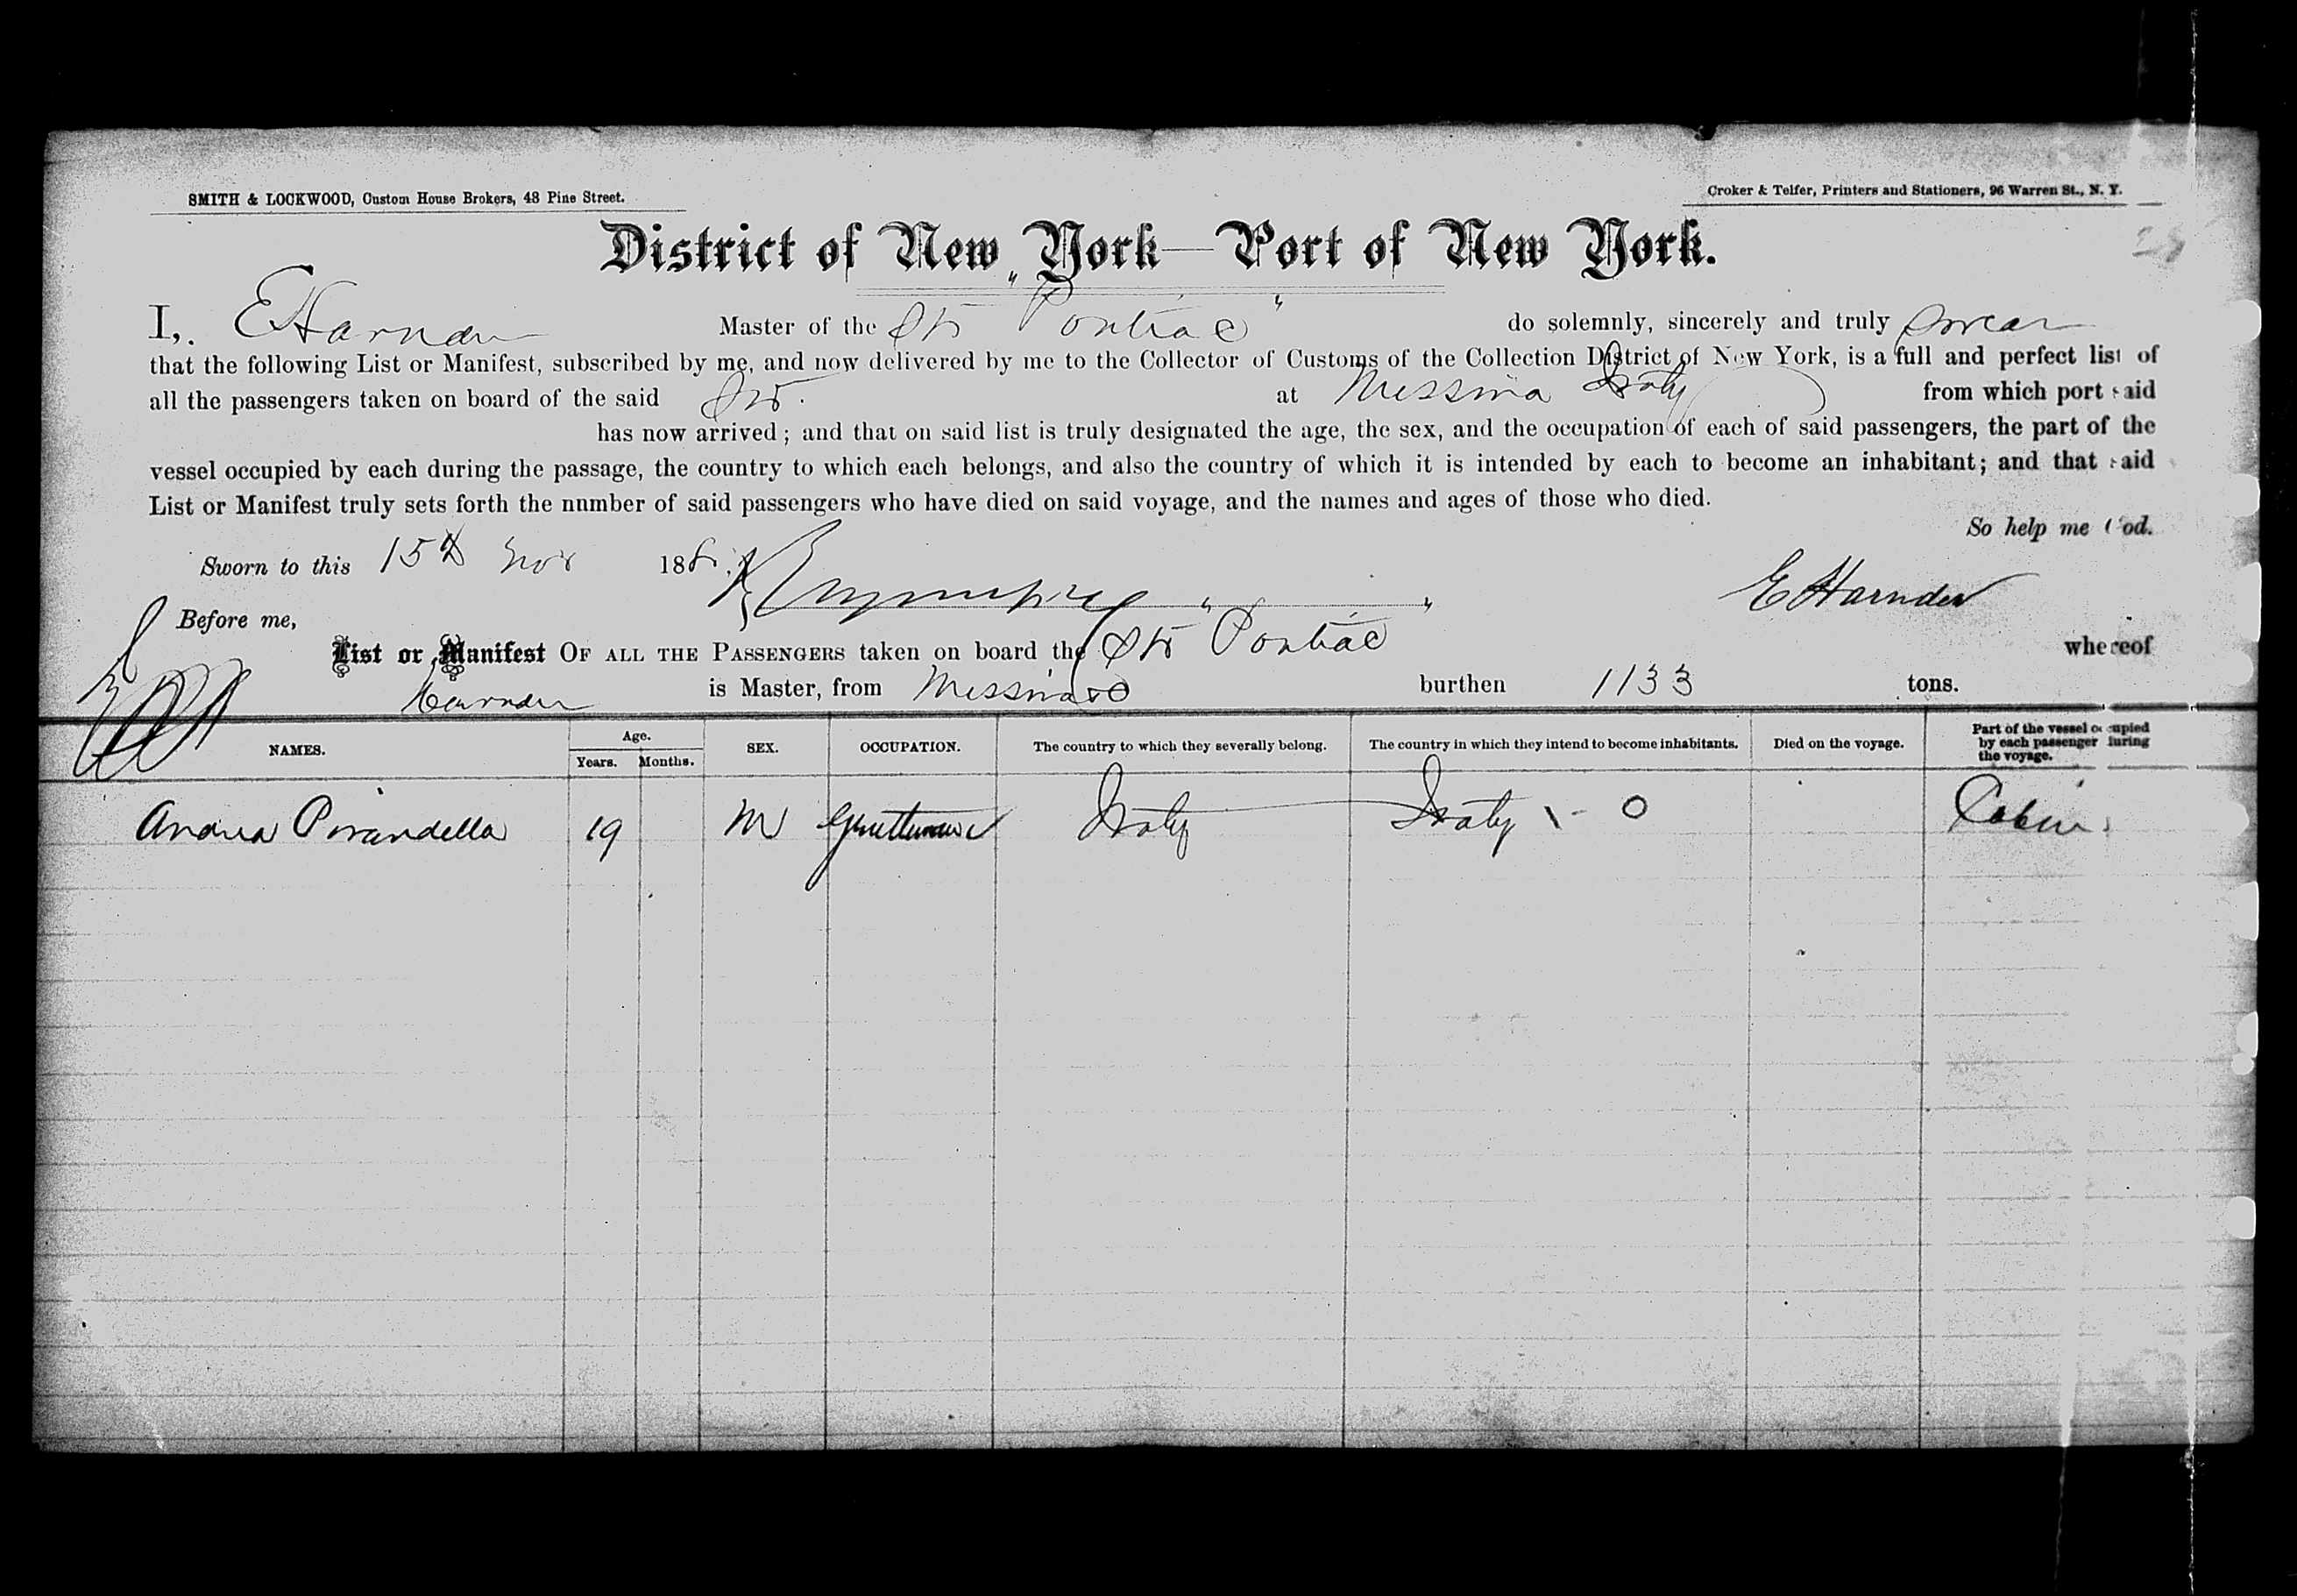 SMITH & LOCKWOOD, Custom House Brokers, 48 Pine Street.
Croker & Telfer, Printers and Stationers, 96 Warren St., N. Y.
District of New York—Port of New York.
I, E Harnden Master of the Str "Pontiac" do solemnly, sincerely and truly swear
that the following List or Manifest, subscribed by me, and now delivered by me to the Collector of Customs of the Collection District of New York, is a full and perfect list of
all the passengers taken on board of the said Str. at Messina Italy from which port said
has now arrived; and that on said list is truly designated the age, the sex, and the occupation of each of said passengers, the part of the
vessel occupied by each during the passage, the country to which each belongs, and also the country of which it is intended by each to become an inhabitant; and that said
List or Manifest truly sets forth the number of said passengers who have died on said voyage, and the names and ages of those who died.
So help me God.
Sworn to this 15th Nov 188
E Harnden
Before me,
List or Manifest OF ALL THE PASSENGERS taken on board the Str "Pontiac" whereof
Harnden is Master, from Messina burthen 1133 tons.
NAMES. Age. Years. Months. SEX. OCCUPATION. The country to which they severally belong. The country in which they intend to become inhabitants. Died on the voyage. Part of the vessel occupied by each passenger during the voyage.
Andrea Pirandello 19 M Gentleman Italy Italy 1 - 0 Cabin